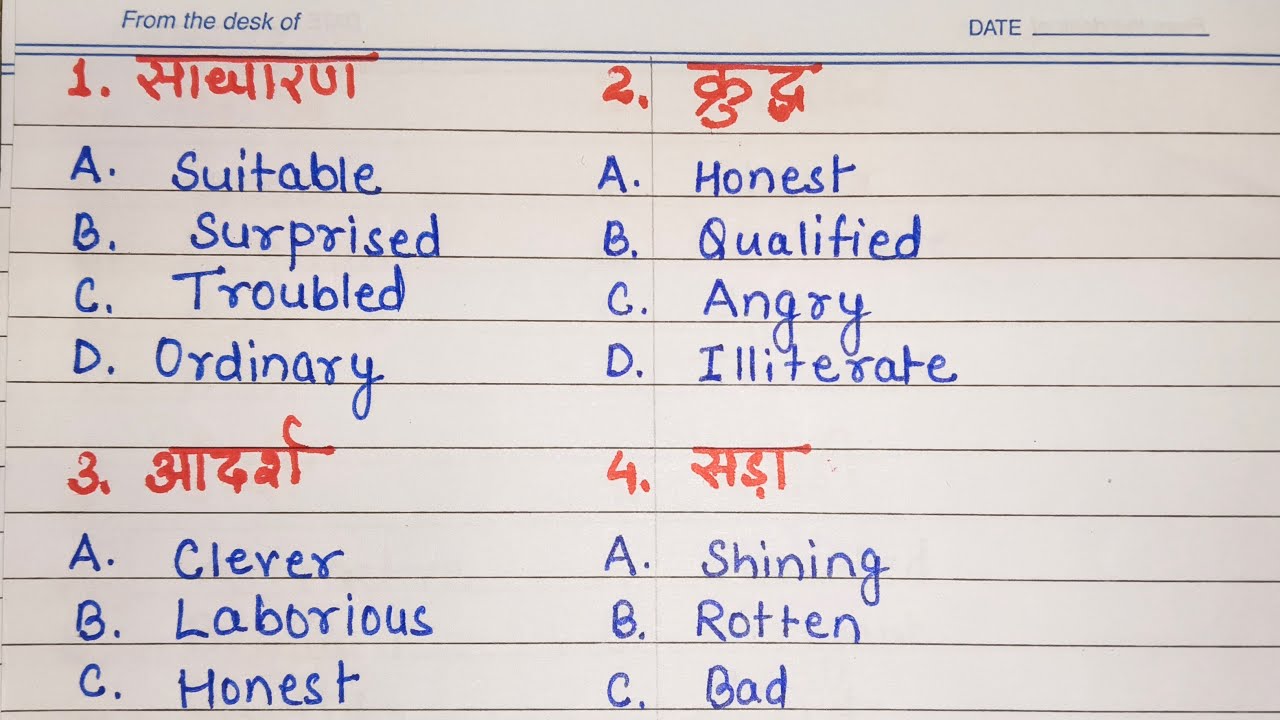 From the desk of
DATE
1. साधारण
A. Suitable
B. Surprised
C. Troubled
D. Ordinary
2. क्रुद्ध
A. Honest
B. Qualified
C. Angry
D. Illiterate
3. आदर्श
A. Clever
B. Laborious
C. Honest
4. सड़ा
A. Shining
B. Rotten
C. Bad